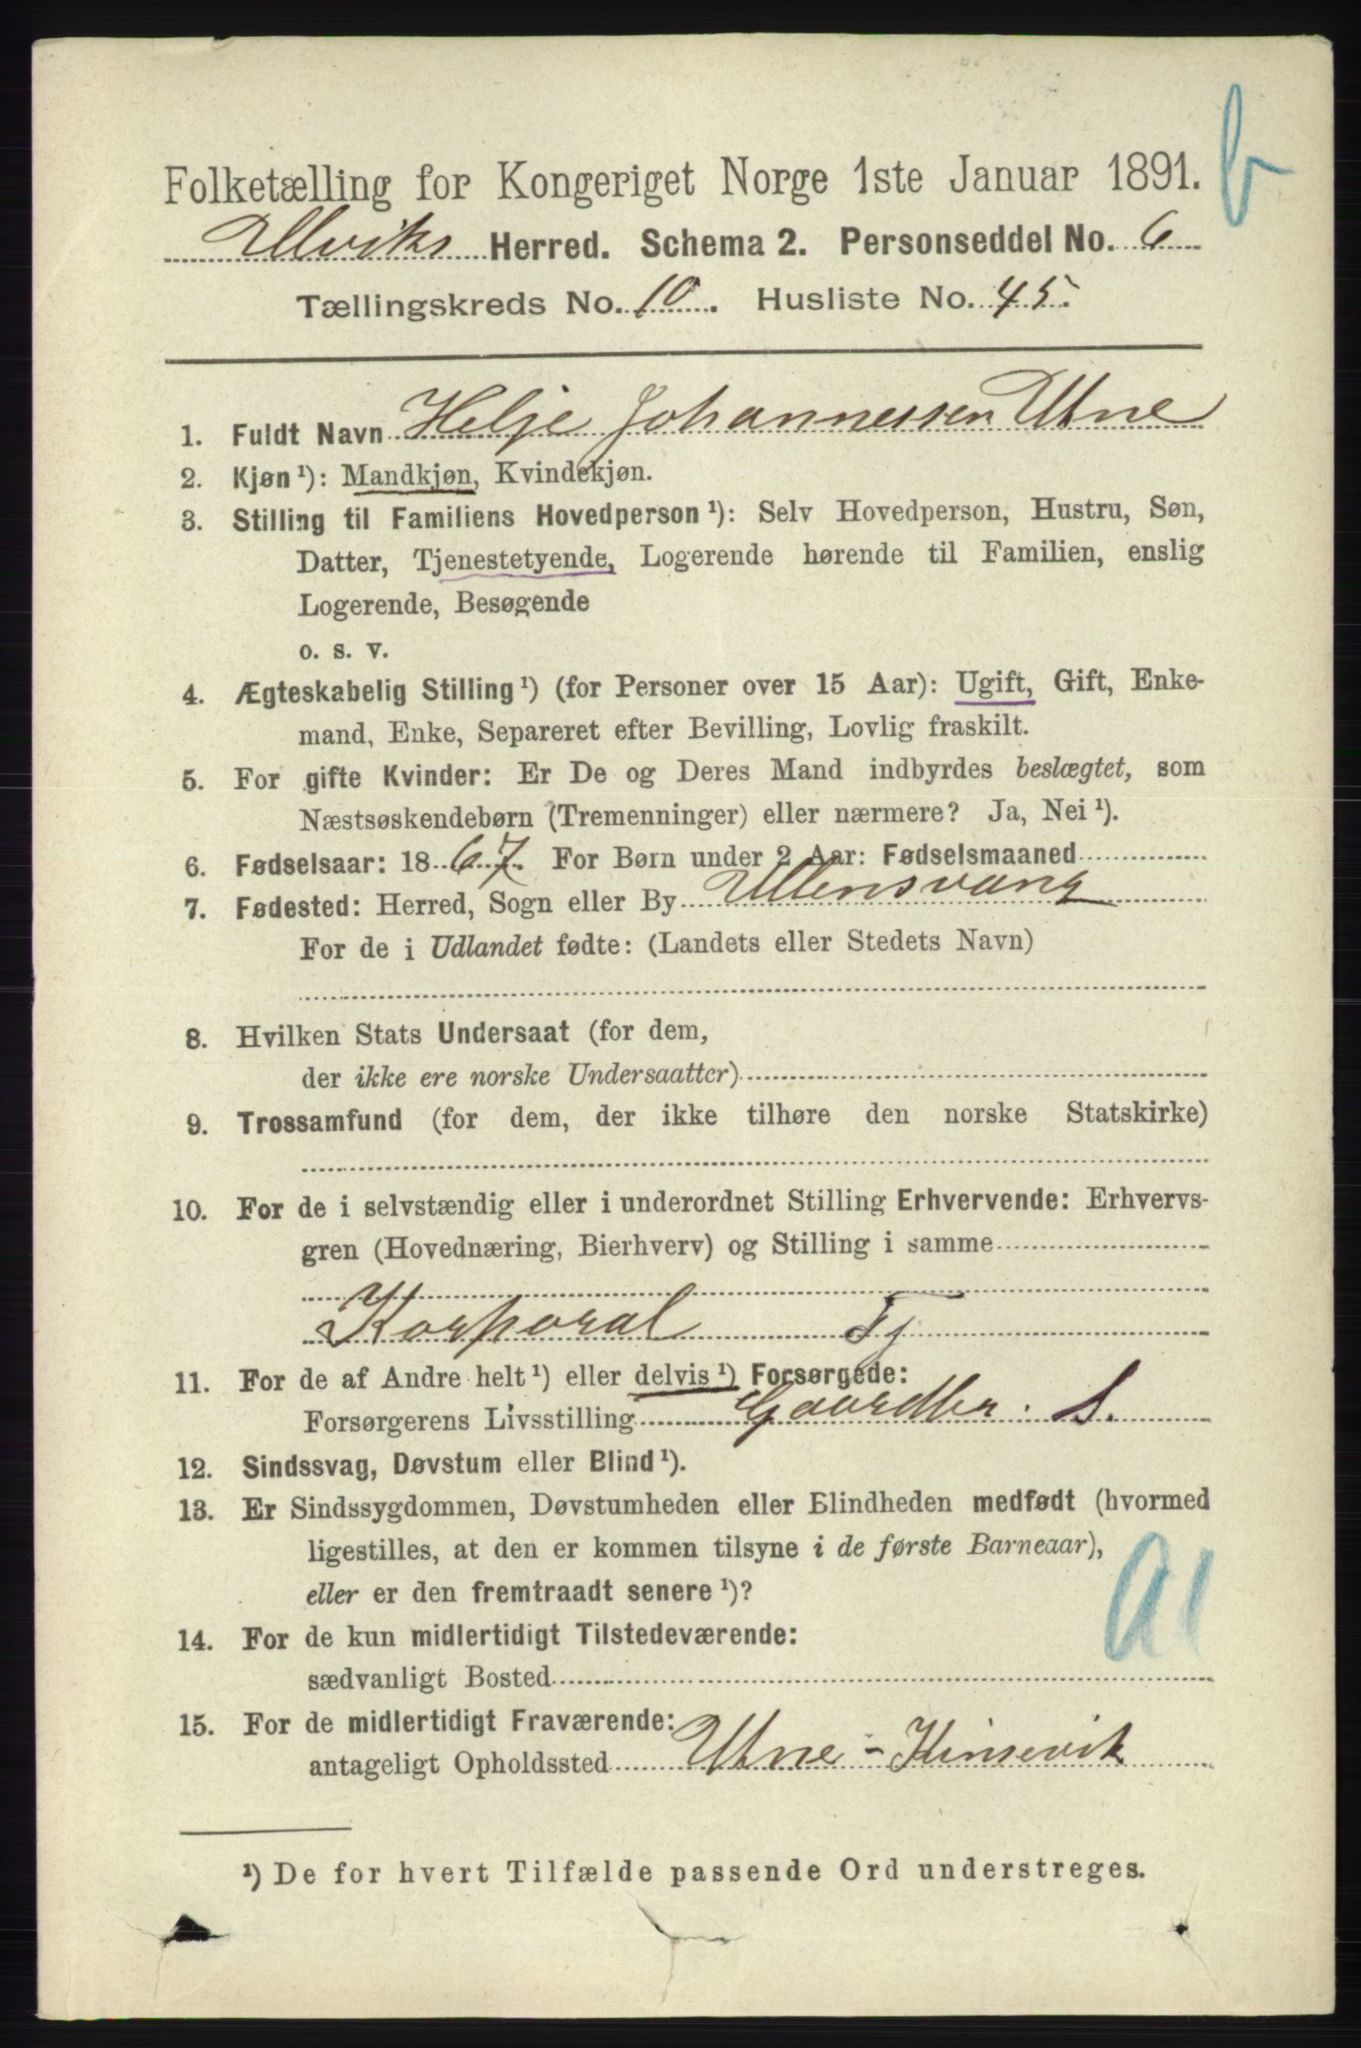 b
Folketælling for Kongeriget Norge 1ste Januar 1891.
Ulviks Herred. Schema 2. Personseddel No. 6
Tællingskreds No. 10. Husliste No. 45.
1. Fuldt Navn Helje Johannessen Utne
2. Kjøn ¹): Mandkjøn, Kvindekjøn.
3. Stilling til Familiens Hovedperson ¹): Selv Hovedperson, Hustru, Søn,
Datter, Tjenestetyende, Logerende hørende til Familien, enslig
Logerende, Besøgende
o. s. v.
4. Ægteskabelig Stilling ¹) (for Personer over 15 Aar): Ugift, Gift, Enke-
mand, Enke, Separeret efter Bevilling, Lovlig fraskilt.
5. For gifte Kvinder: Er De og Deres Mand indbyrdes beslægtet, som
Næstsøskendebørn (Tremenninger) eller nærmere? Ja, Nei ¹).
6. Fødselsaar: 1867. For Børn under 2 Aar: Fødselsmaaned
7. Fødested: Herred, Sogn eller By Ullensvang
For de i Udlandet fødte: (Landets eller Stedets Navn)
8. Hvilken Stats Undersaat (for dem,
der ikke ere norske Undersaatter)
9. Trossamfund (for dem, der ikke tilhøre den norske Statskirke)
10. For de i selvstændig eller i underordnet Stilling Erhvervende: Erhvervs-
gren (Hovednæring, Bierhverv) og Stilling i samme
Korporal Tj
11. For de af Andre helt ¹) eller delvis ¹) Forsørgede:
Forsørgerens Livsstilling Gaardbr. S.
12. Sindssvag, Døvstum eller Blind ¹).
13. Er Sindssygdommen, Døvstumheden eller Blindheden medfødt (hvormed
ligestilles, at den er kommen tilsyne i de første Barneaar),
eller er den fremtraadt senere ¹)?
14. For de kun midlertidigt Tilstedeværende:
sædvanligt Bosted
15. For de midlertidigt Fraværende:
antageligt Opholdssted Utne - Kinservik
¹) De for hvert Tilfælde passende Ord understreges.